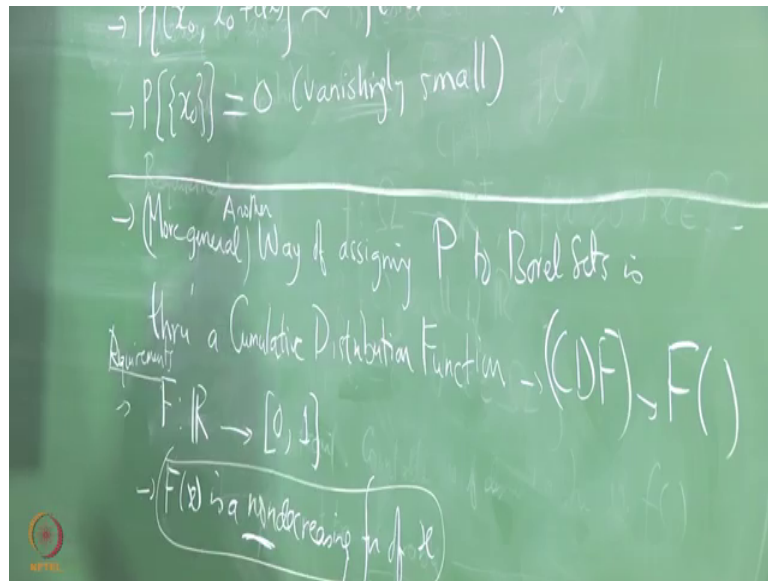 → P[(x₀, x₀+dx)] ~
→ P[{x₀}] = 0 (vanishingly small)
Another
→ (More general) Way of assigning P to Borel Sets is
thru a Cumulative Distribution Function → (CDF) → F( )
Requirements
→ F: ℝ → [0, 1]
→ F(x) is a nondecreasing fn of x
NPTEL